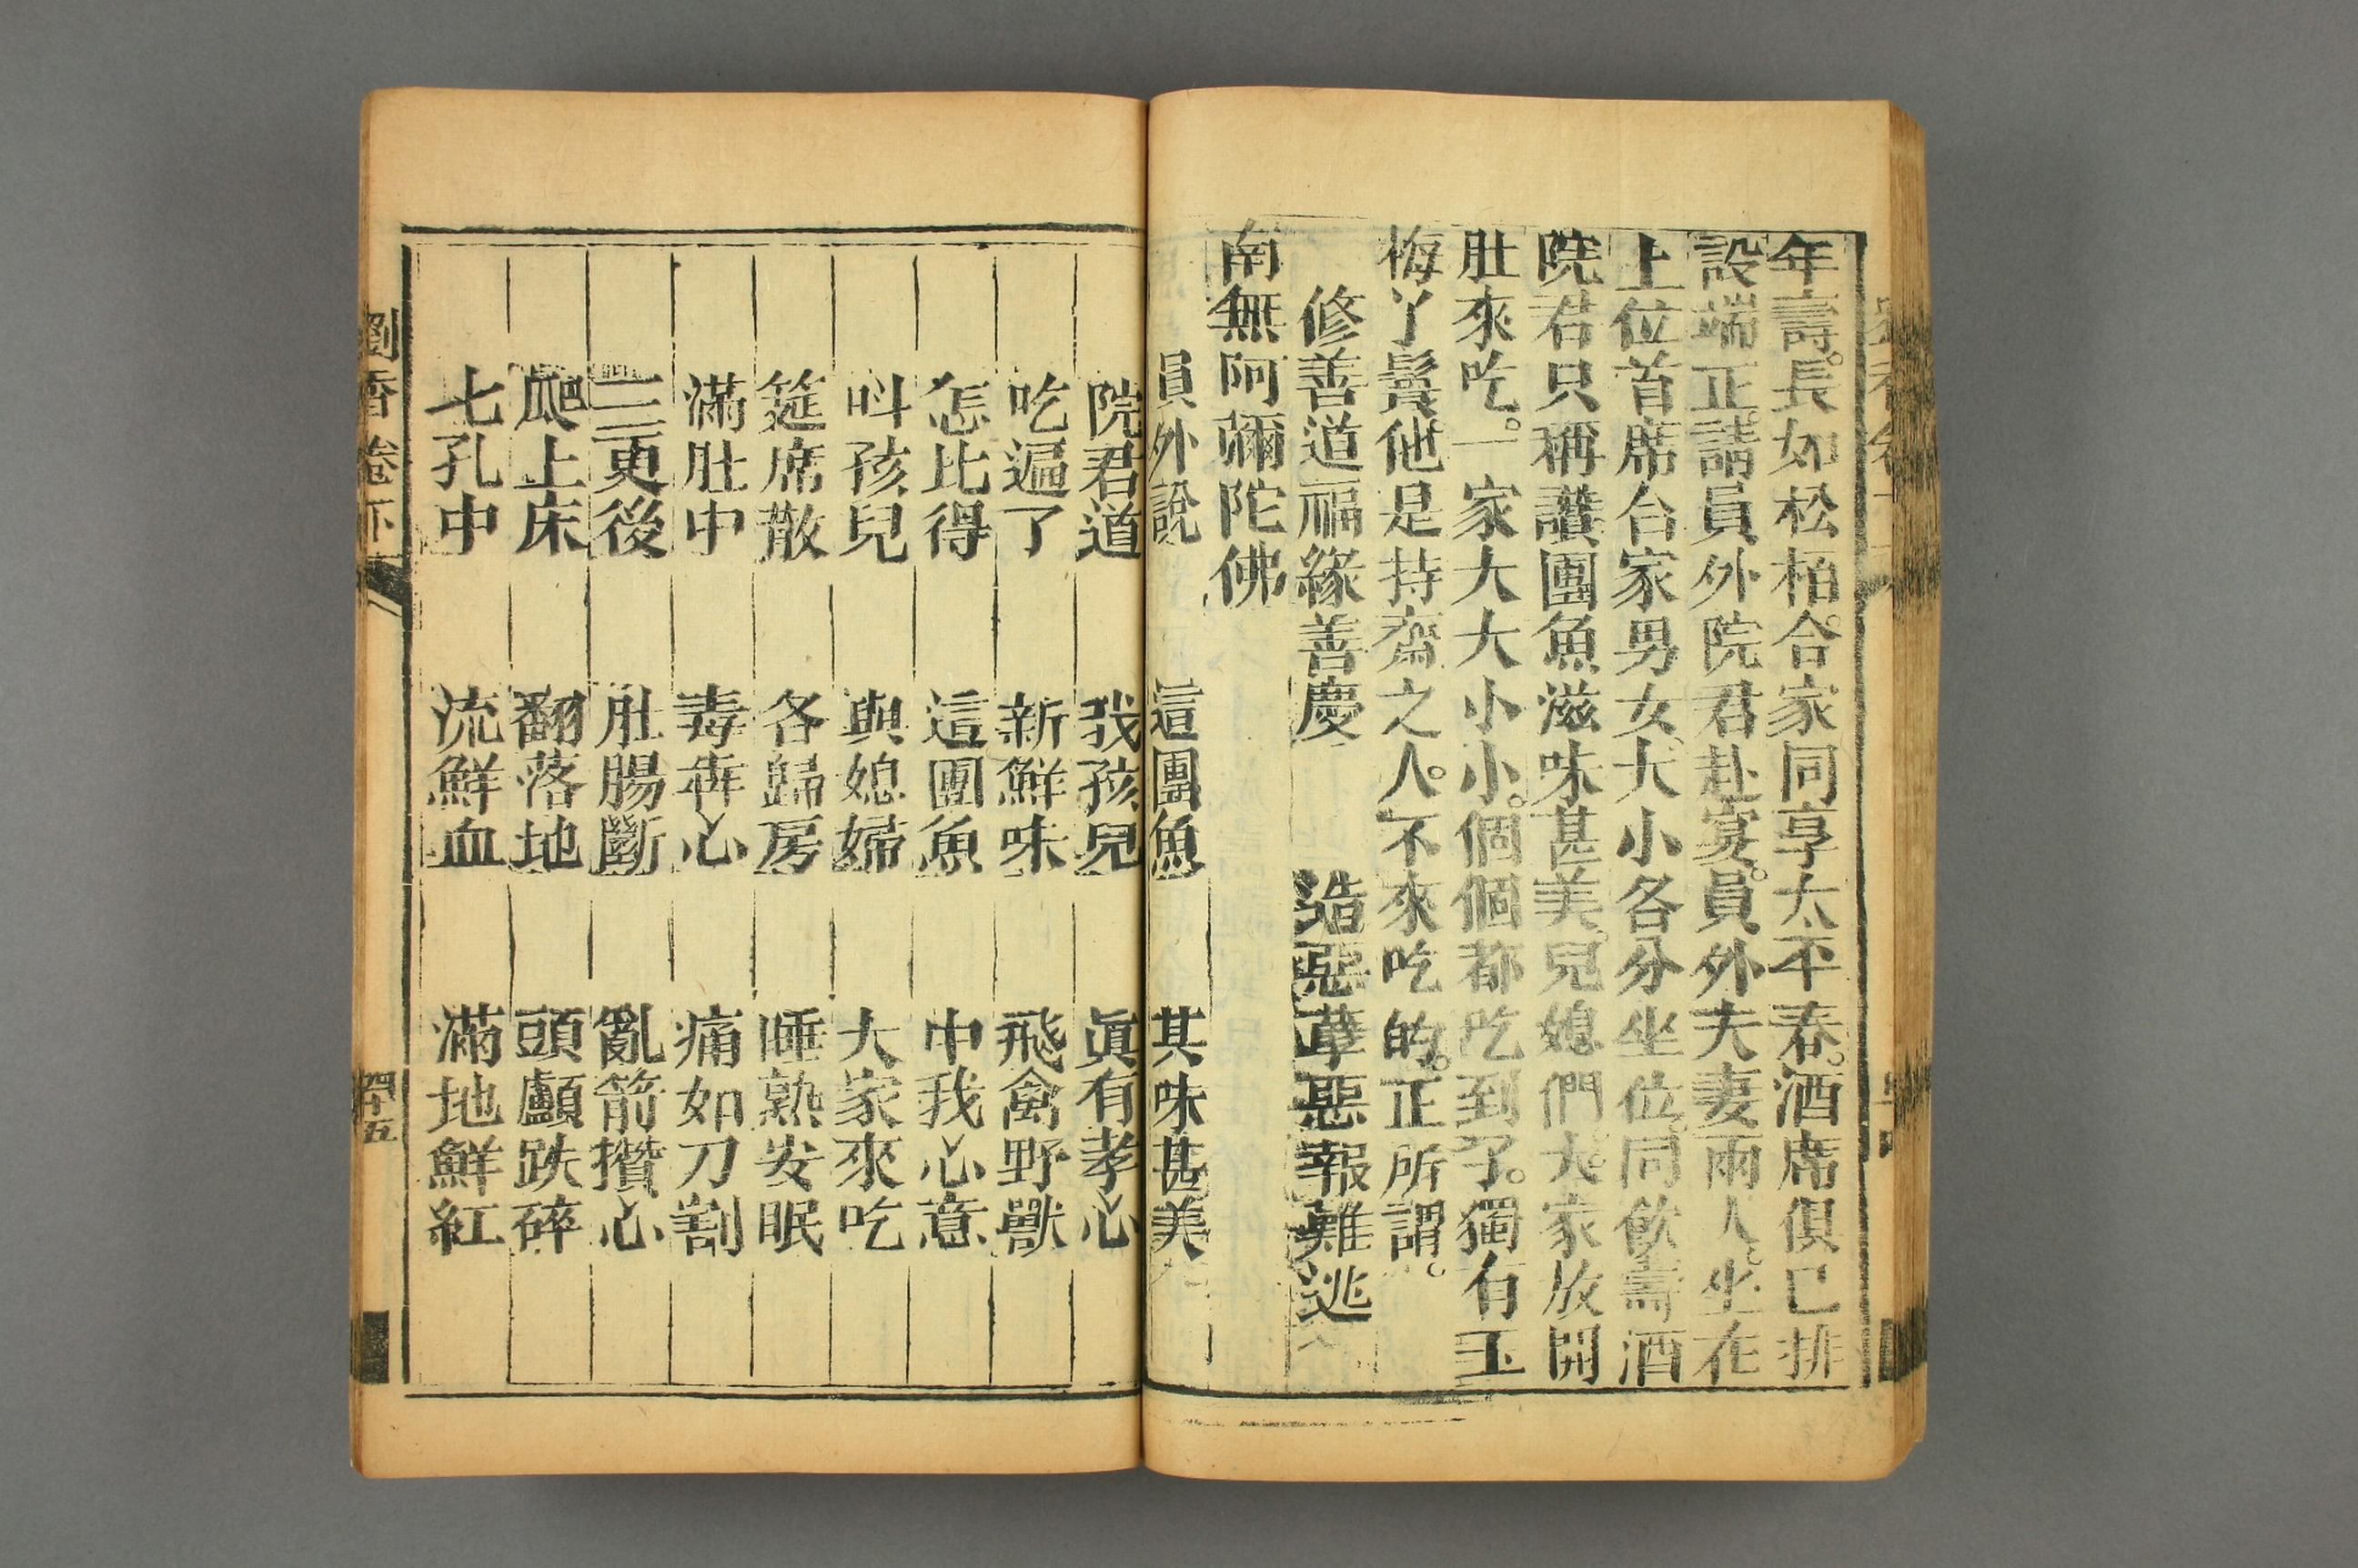 年壽。長如松柏。合家同享太平春。酒席俱已排
設端正。請員外院君赴宴。員外夫妻兩人。坐在
上位首席。台家男女。大小各分坐位。同飲壽酒
院君只稱讚團魚滋味甚美。兒媳們。大家放開
肚來吃。一家大大小小。個個都吃到了。獨有玉
梅丫鬟他是持齋之人。不來吃的。正所謂。
修善道福緣善慶 造惡孽惡報難逃
南無阿彌陀佛
員外說 這團魚 其味甚美
院君道 我孩兒 眞有孝心
吃遍了 新鮮味 飛禽野獸
怎比得 這團魚 中我心意
呌孩兒 與媳婦 大家來吃
筵席散 各歸房 睡熟安眠
滿肚中 毒奔心 痛如刀割
三更後 肚腸斷 亂箭攢心
爬上床 翻落地 頭顱跌碎
七孔中 流鮮血 滿地鮮紅
劉香卷下 四十五